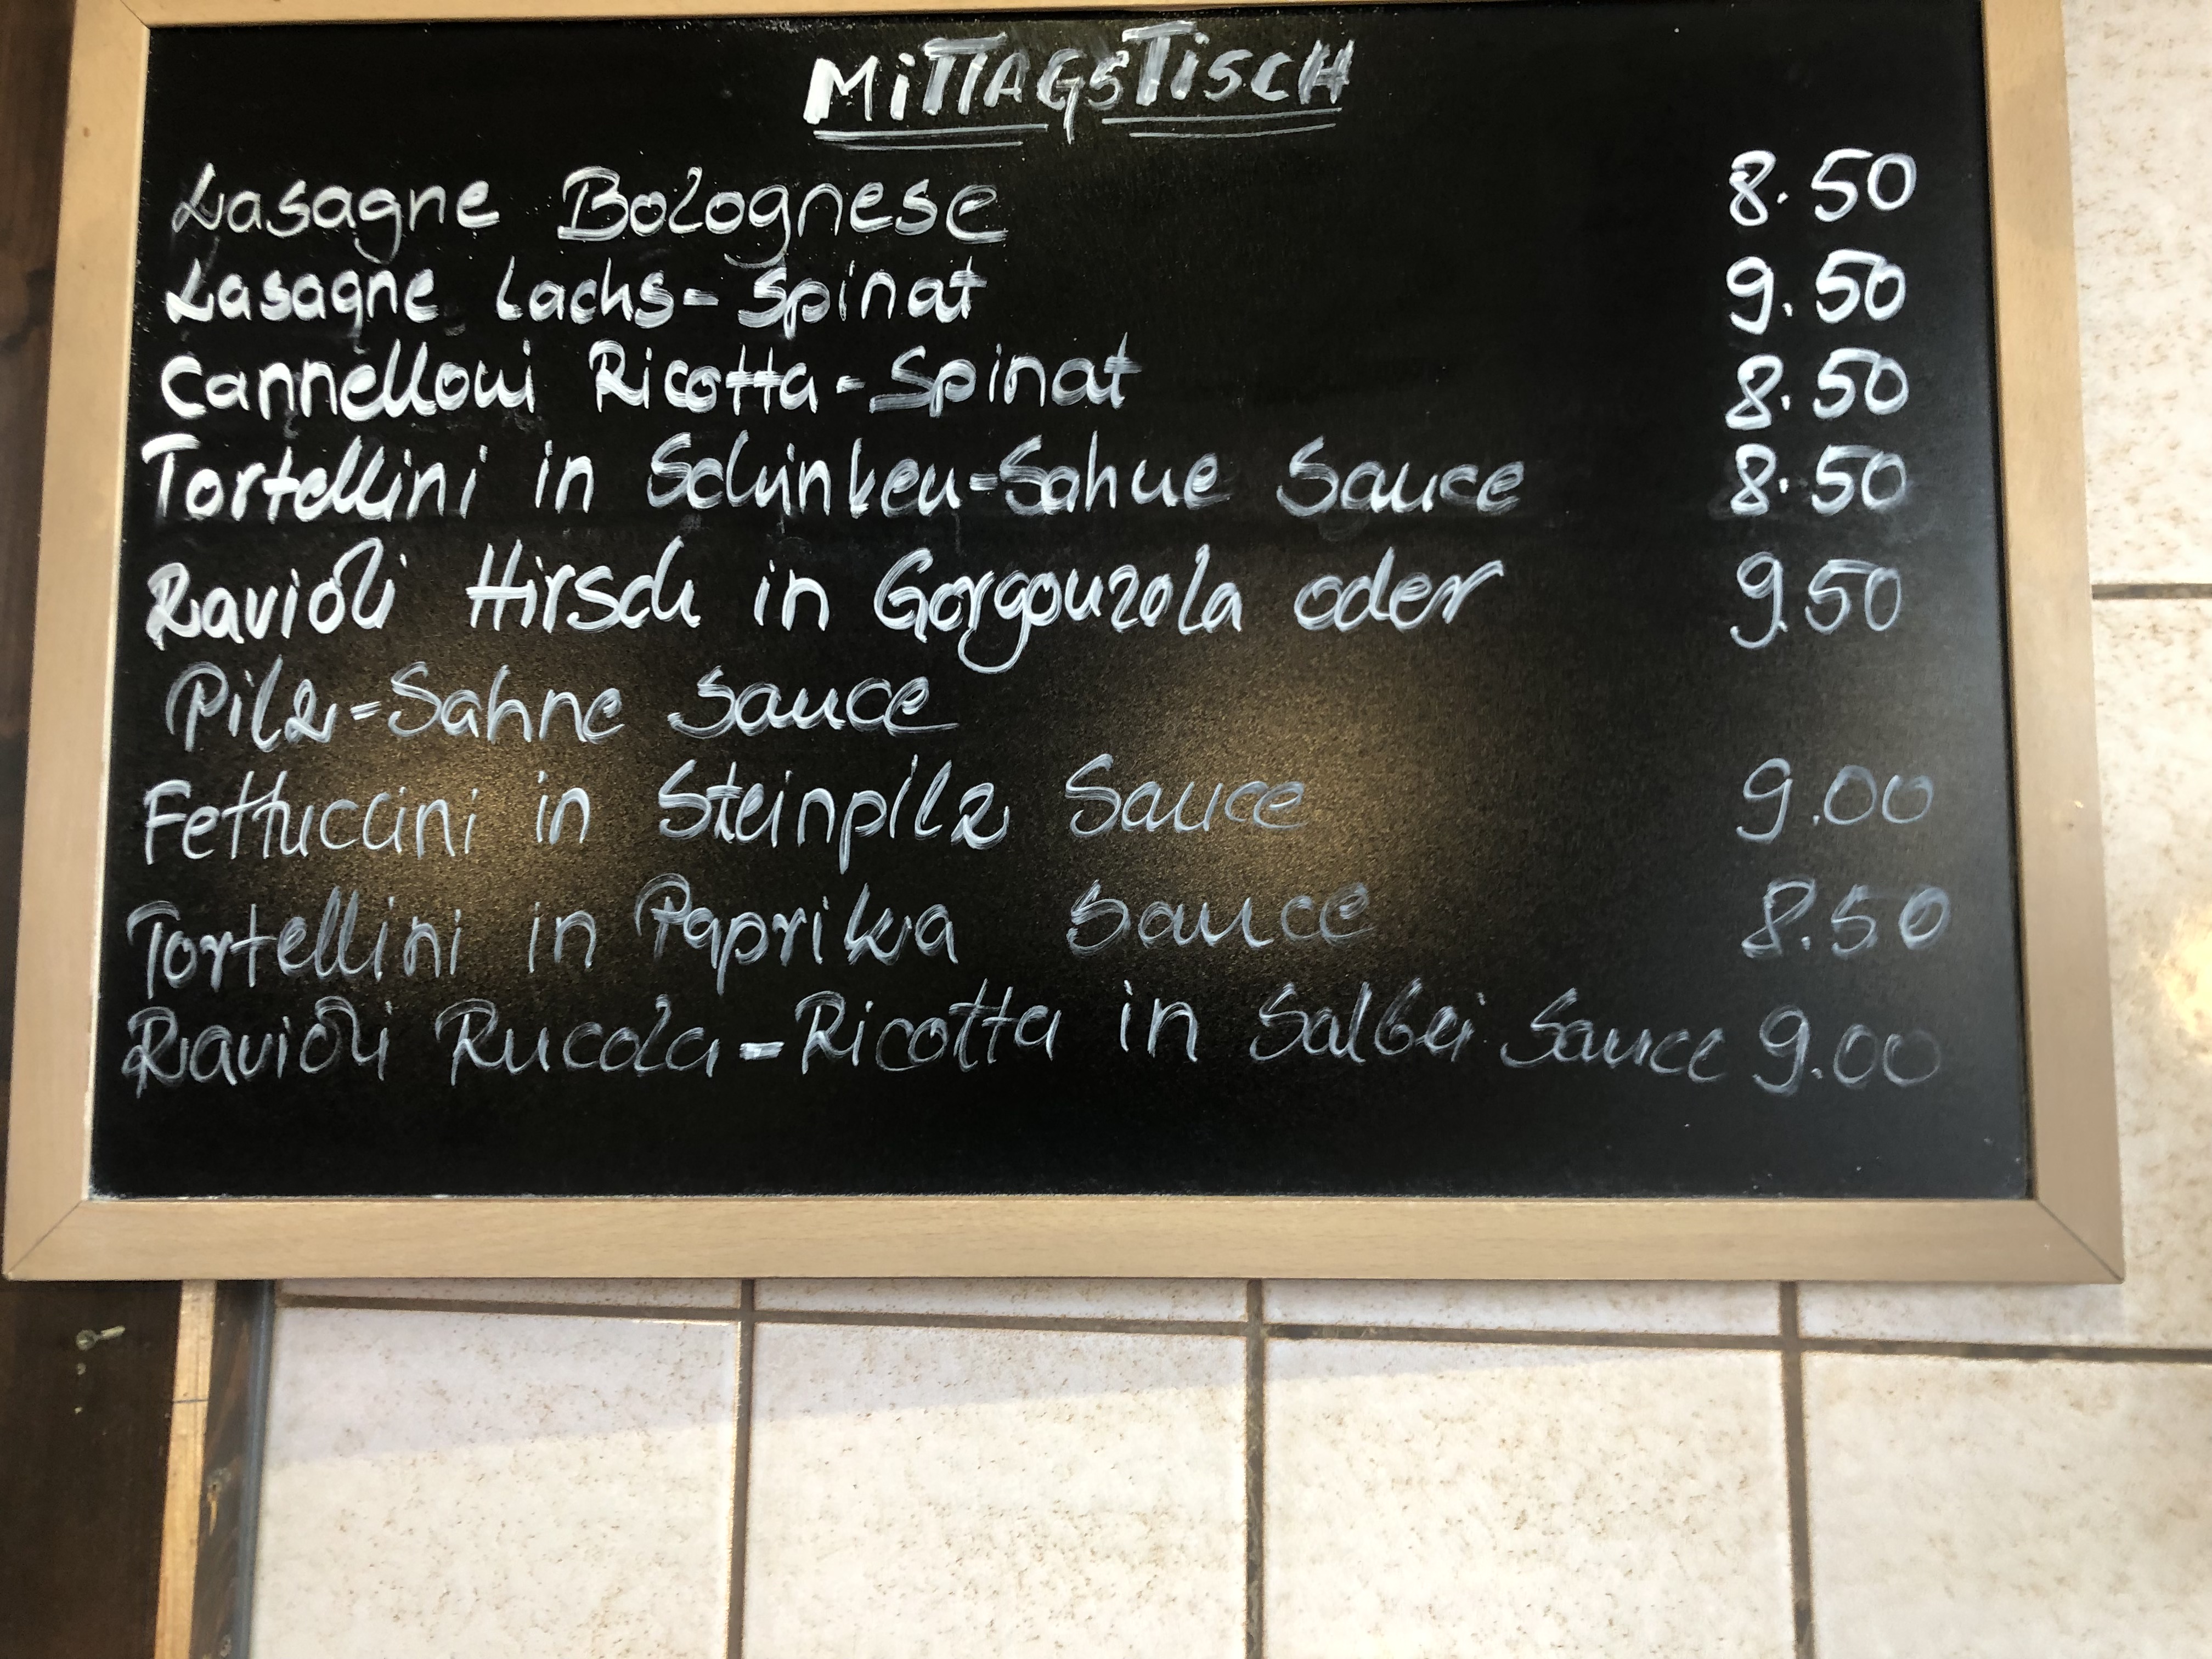 MITTAGSTISCH
Lasagne Bolognese 8.50
Lasagne Lachs-Spinat 9.50
Cannelloni Ricotta-Spinat 8.50
Tortellini in Schinken-Sahne Sauce 8.50
Ravioli Hirsch in Gorgonzola oder 9.50
Pilz-Sahne Sauce
Fettuccini in Steinpilz Sauce 9.00
Tortellini in Paprika Sauce 8.50
Ravioli Rucola-Ricotta in Salbei Sauce 9.00